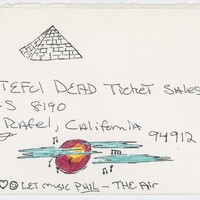 TEFUL DEAD Ticket Sales
S 8190
RAFEL, CALIFORNIA
94912
LET MUSIC PHIL - THE AIR